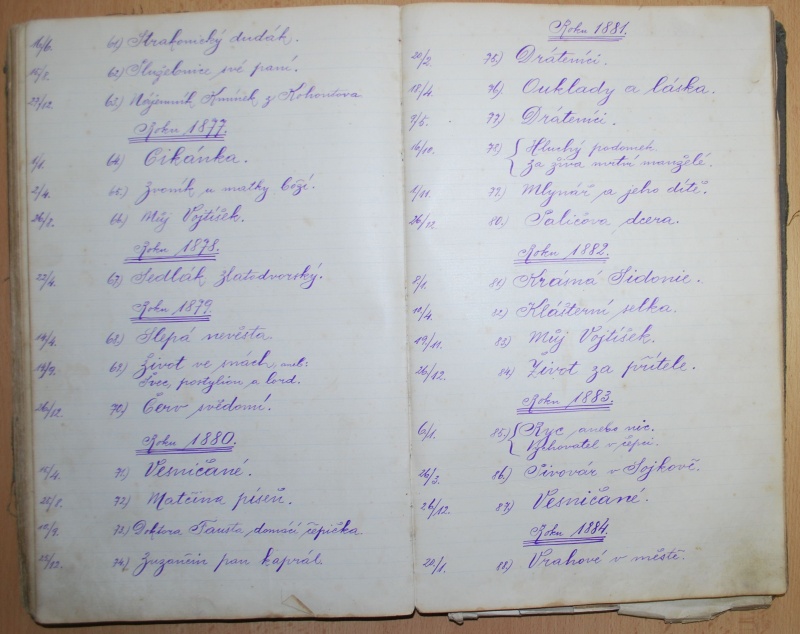 16/6. 61) Strakonický dudák.
15/8. 62) Služebnice své paní.
27/12. 63) Nájemník Kmínek z Kohoutova
Roku 1877.
1/1. 64) Cikánka.
2/4. 65) Zvoník u matky boží.
26/8. 66) Můj Vojtíšek.
Roku 1878.
22/4. 67) Sedlák zlatodvorský.
Roku 1879.
14/4. 68) Slepá nevěsta
14/9. 69) Život ve snách, aneb:
Švec, postylion a lord.
26/12. 70) Červ svědomí.
Roku 1880.
71) Vesničané.
72) Matčina píseň.
73) Doktora Fausta domácí čepička
74) Zuzančin pan kaprál.
Roku 1881.
20/2. 75) Dráteníci.
18/4. 76) Ouklady a láska.
7/5. 77) Dráteníci.
16/10. 78) Hluchý podomek.
Za živa mrtví manželé.
1/11. 79) Mlynář a jeho dítě.
26/12 80) Paličova dcera.
Roku 1882.
81) Krásná Sidonie.
82) Klášterní selka.
19/11. 83) Můj Vojtíšek.
26/12. 84) Život za přítele.
Roku 1883.
6/1. 85) Ryc anebo nic.
v čepci.
26/3. 86) Pivovár v Sojkově.
26/12. 87) Vesničané.
Roku 1884.
20/1. 88) Vrahové v městě.